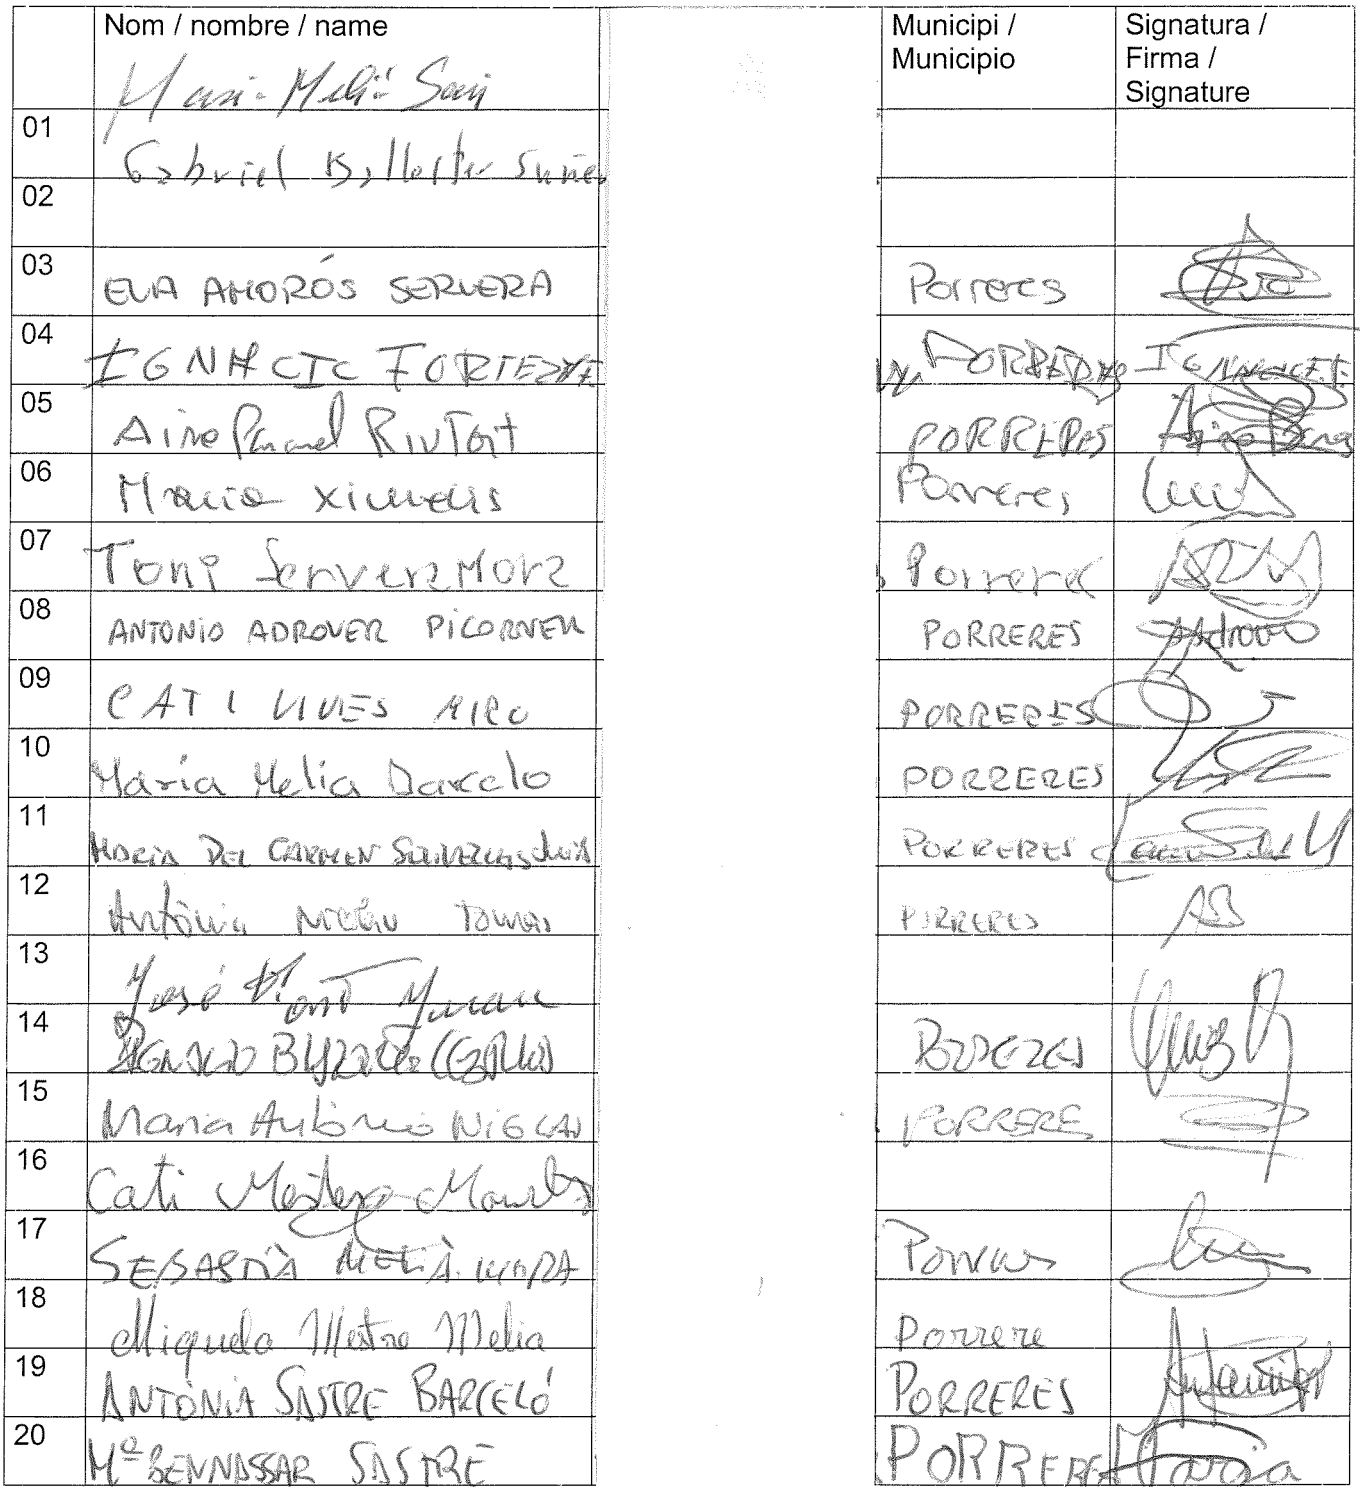 Nom / nombre / name Municipi / Signatura /
Municipio Firma /
Signature
Melià
01
Gabriel Ballester Suñer
02
03 EVA AMORÓS SERVERA Porreres
04 IGNACIO FORTEZA
05 Aina Riutort PORRERES
06 Maria Ximenis Porreres
07 Toni Servera Mora Porreres
08 ANTONIO ADROVER PICORNELL PORRERES
09 CATI VIVES MIRO PORRERES
10 Maria Melia Barcelo PORRERES
11 MARIA DEL CARMEN PORRERES
12 Antònia Nicolau Tomas PORRERES
13 José
14 IGNACIO PORRERES
15 Maria Antònia NICOLAU PORRERES
16 Cati Mestre
17 SEBASTIÀ MELIÀ MORA Porreres
18 Miquela Mestre Melia Porrere
19 ANTÒNIA SASTRE BARCELÓ PORRERES
20 Mª BENNASSAR SASTRE PORRERES Maria